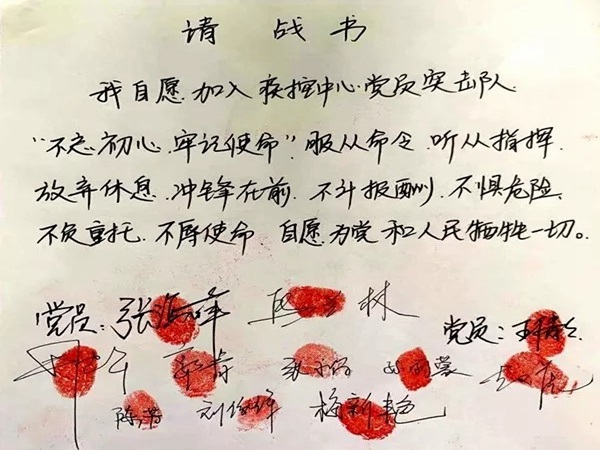 请战书
我自愿加入疾控中心党员突击队.
“不忘初心.牢记使命”.服从命令.听从指挥.
放弃休息.冲锋在前.不计报酬.不惧危险.
不负重托.不辱使命 自愿为党和人民牺牲一切。
党员:张 峰 林
党员:
陈 刘 梅新艳